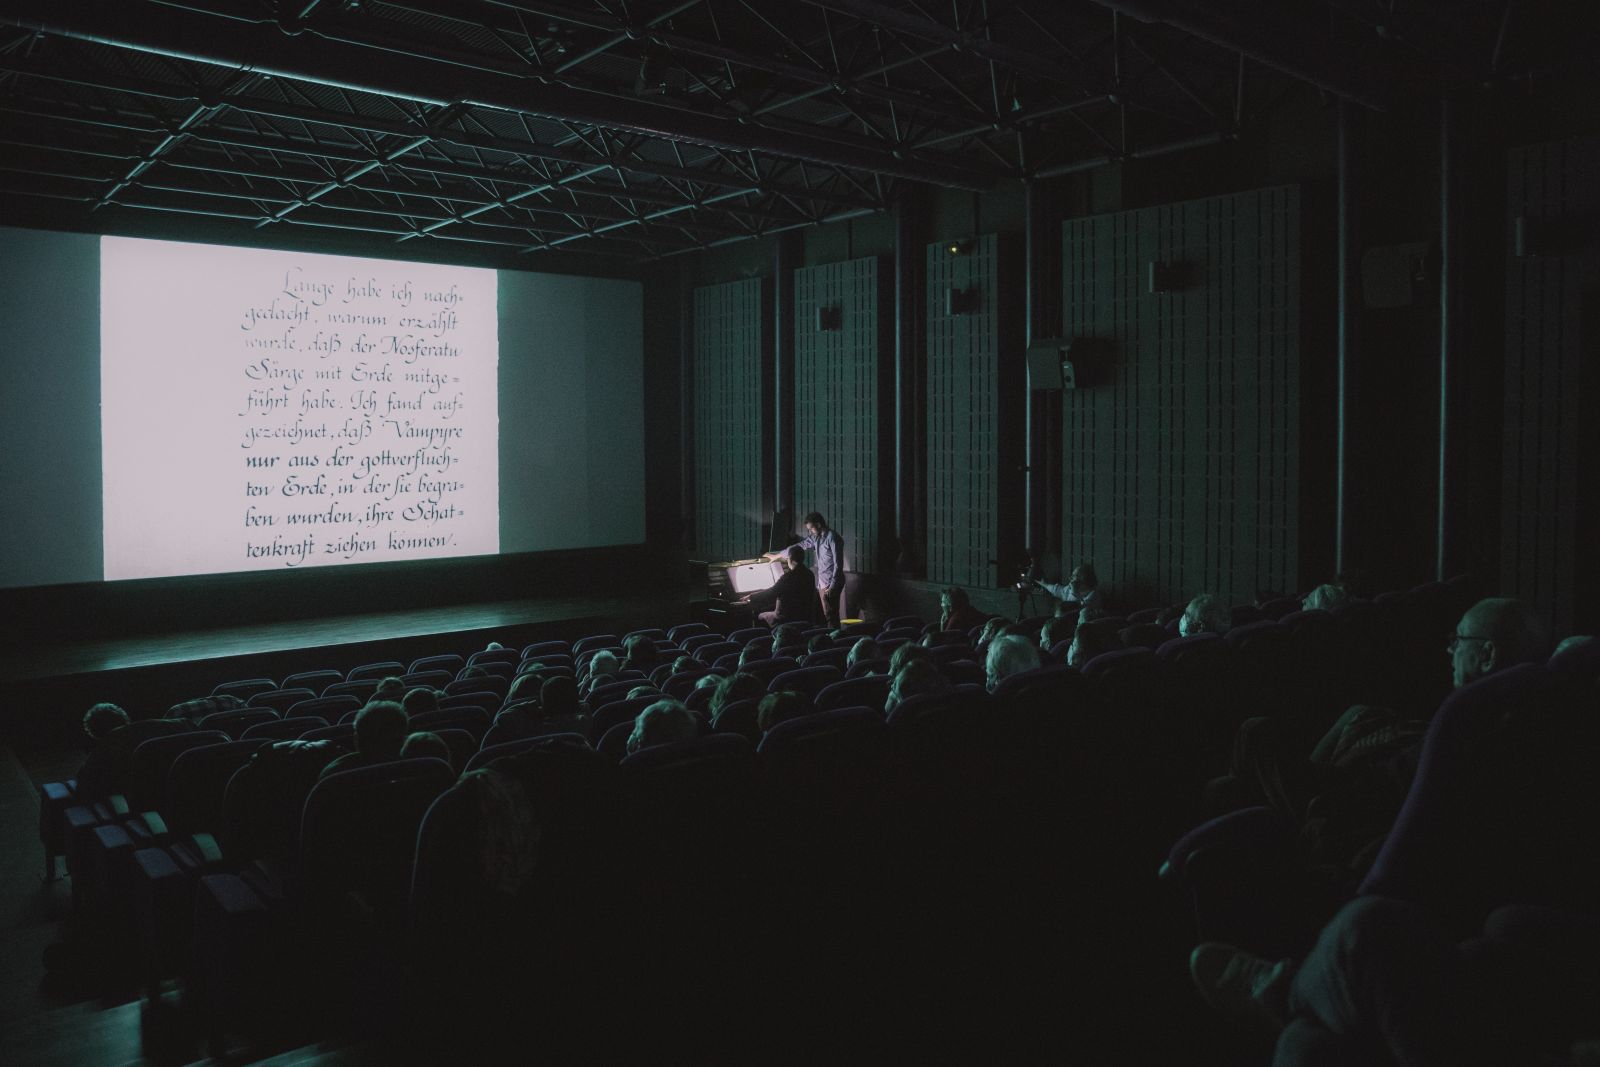 Lange habe ich nach=
gedacht, warum erzählt
wurde, daß der Nosferatu
Särge mit Erde mitge=
führt habe. Ich fand auf=
gezeichnet, daß Vampyre
nur aus der gottverfluch=
ten Erde, in der sie begra=
ben wurden, ihre Schat=
tenkraft ziehen können.